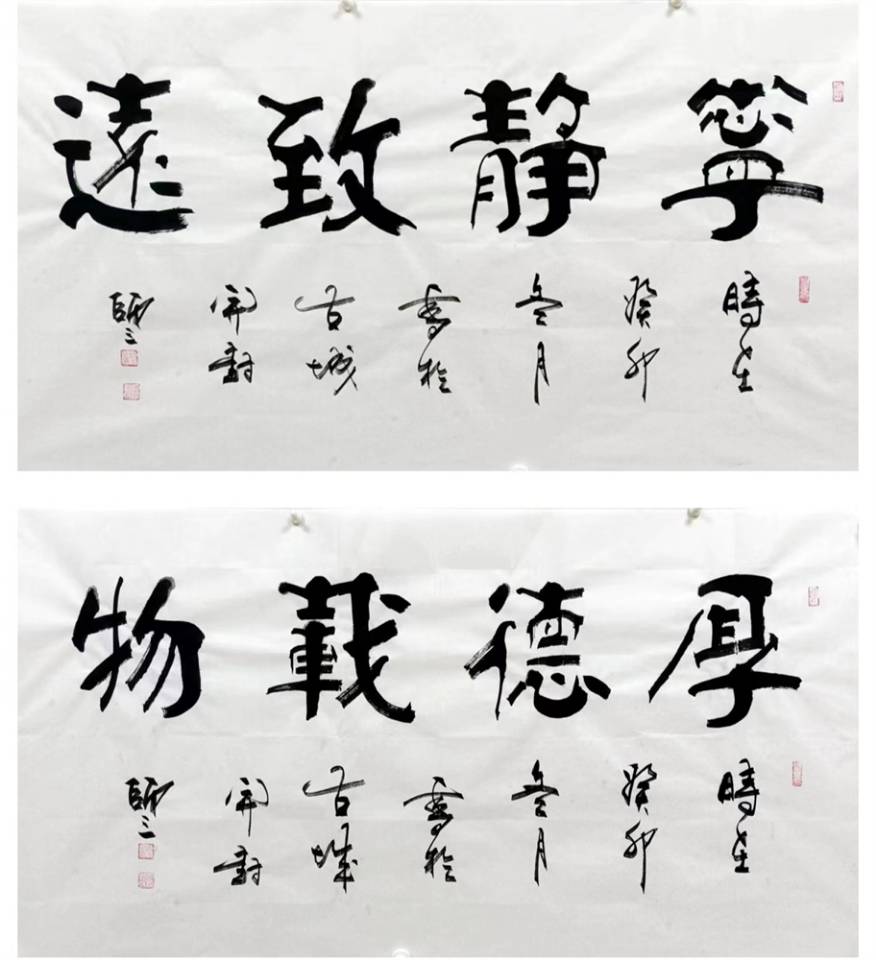 寧靜致遠
時在
癸卯
冬月
書於
古城
開封
師三
厚德載物
時在
癸卯
冬月
書於
古城
開封
師三